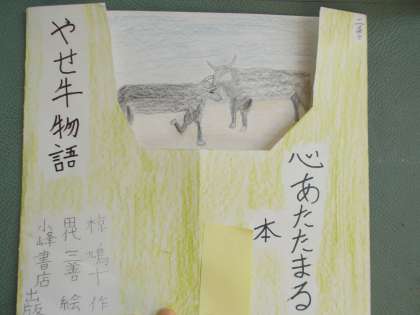 心あたたまる
本
やせ牛物語
椋鳩十 作
田代三善 絵
小峰書店 出版